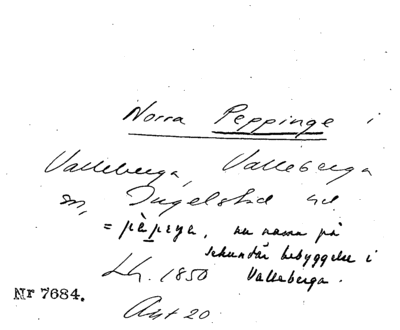 Norra Peppinge i
Valleberga, Valleberga
sn, Ingelstad hd.
= pàpıŋa, nu namn på
sekundär bebyggelse i
Lh. 1850 Valleberga.
Nr 7684.
Avt 20